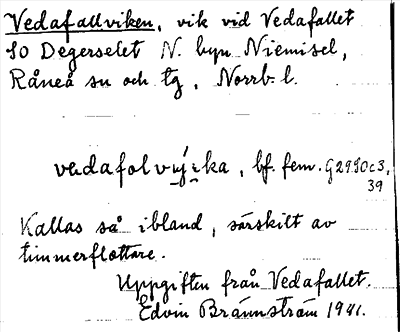 Vedafallviken, vik vid Vedafallet
SO Degerselet N. byn Niemisel,
Råneå sn och tg, Norrb. l.
vedafolvi̯ka, bf. fem. G2990c3,
39
Kallas så ibland, särskilt av
timmerflottare.
Uppgiften från Vedafallet.
Edvin Brännström 1941.